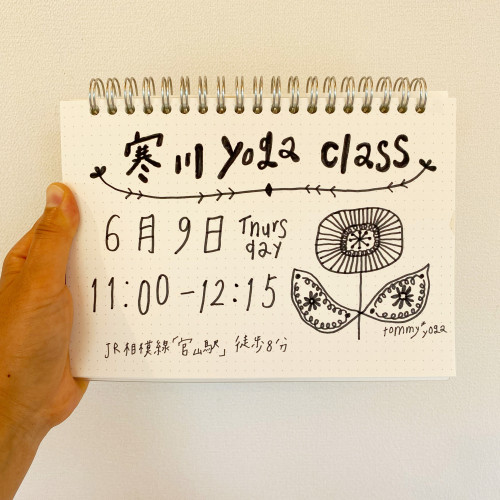 寒川 yoga class
6月9日 Thurs
day
11:00-12:15
tommy*yoga
JR相模線「宮山駅」 徒歩8分